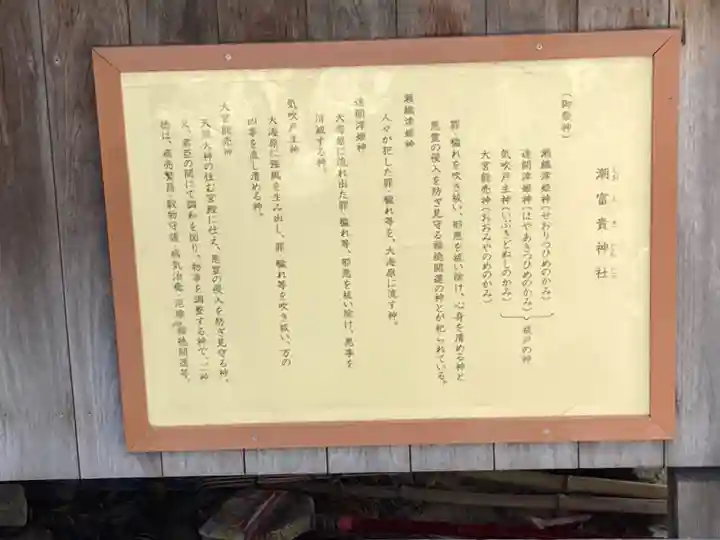 潮富貴神社
(御祭神)
瀬織津姫神(せおりつひめのかみ)
速開津姫神(はやあきつひめのかみ)
気吹戸主神(いぶきどぬしのかみ)
祓戸の神
大宮能売神(おおみやのめのかみ)
罪・穢れを吹き祓い、邪悪を祓い除け、心身を清める神と
悪霊の侵入を防ぎ見守る福徳開運の神とが祀られている。
瀬織津姫神
人々が犯した罪・穢れ等を、大海原に流す神。
速開津姫神
大海原に流れ出た罪・穢れ等、邪悪を祓い除け、悪事を
消滅する神。
気吹戸主神
大海原に強風を生み出し、罪・穢れ等を吹き祓い、万の
凶事を直し清める神。
大宮能売神
天照大神の住む宮殿に仕え、悪霊の侵入を防ぎ見守る神。
又、君臣の間にて調和を図り、物事を調整する神で、ご神
徳は、商売繁昌・穀物守護・病気治癒・厄除・福徳開運等。